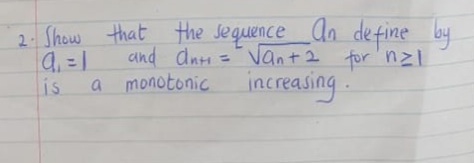 2. Show that the sequence an define by
a₁ = 1 and aₙ₊₁ = √aₙ+2 for n≥1
is a monotonic increasing.